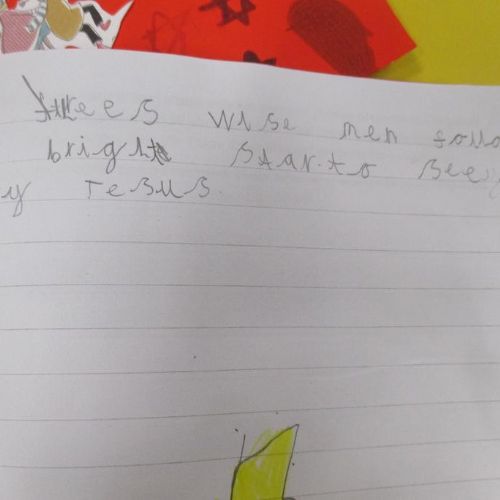 threes wise men follo
bright star.to see
y Jesus.